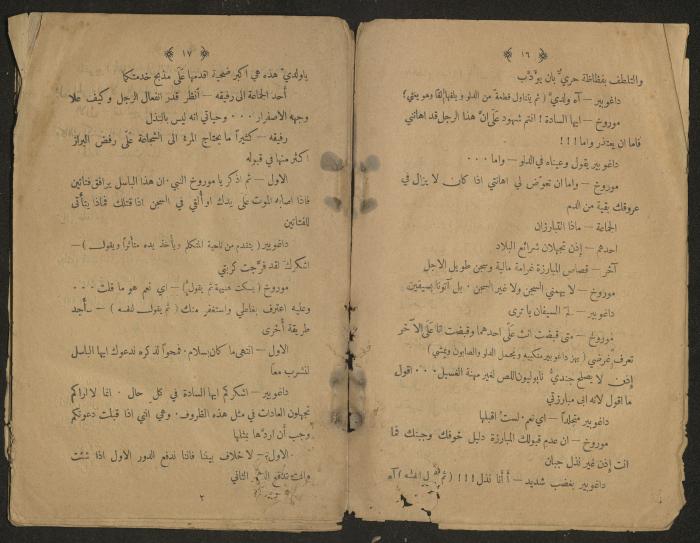 ١٦
والتلطف بفظاظة حريٌّ بان يؤدَّب
داغوبير – آه ولديَّ ( ثم يتناول قطعة من الدلو و يلفها لفّا وهو يتغنى؟
موروخ – ايها السادة ! انتم شهود عَلَى انَّ هذا الرجل قد اهانني
فاما ان يعتذر واما ! ! !
داغوبير يقول وعيناه في الدلو – واما ٠٠٠
موروخ – واما ان تعوّض لي اهانتي اذا كان لا يزال في
عروقك بقية من الدم
الجماعة – ماذا القبارزان
احدهم – إذن تجهلان شرائع البلاد
آخر – قصاص المبارزة غرامة مالية وسجن طويل الاجل
موروخ – لا يهمني السجن ولا غير السجن ٠ بل آتونا بسيفين
داغوبير – لمَ السيفان يا ترى
موروخ – متى قبضتَ انت عَلَى احدهما وقبضت انا عَلَى الآخر
تعرف غرضي ( يهز داغوبير منكبيه و يحمل الدلو والصابون ويمشي )
إذن لا يصلح جنديُّ نابوليون اللص لغير مهنة الغسيل ٠٠٠ اقول
ما اقول لانه ابى مبارزتي
داغوبير متجلداً – اي نعم ٠ لست اقبلها
موروخ – ان عدم قبولك المبارزة دليل خوفك وجبنك فما
انت إذن غير نذل جبان
داغوبير بغضب شديد – أ أنا نذل ! ! ! ( ثم لنفسه ) آه
١٧
ياولديَّ هذه هي اكبر ضحية اقدمها عَلَى مذبح خدمتكما
أحد الجماعة الى رفيقه – أنظر قدر انفعال الرجل وكيف علا
وجهه الاصفرار ٠٠٠ وحياتي انه ليس بالنذل
رفيقه – كثيراً ما يحتاج المرة الى الشجاعة عَلَى رفض البراز
اكثر منها في قبوله
الاول – ثم اذكر يا موروخ النبي ٠ ان هذا الباسل يرافق فتاتين
فاذا اصابه الموت عَلَى يدك او أُلقي في السجن اذا قتلك فماذا يتأتى
للفتاتين
داغوبير ( يتقدم من ناحية المتكلم و يأخذ يده متأثراً ويقول ) –
اشكرك لقد فرَّجت كربتي
موروخ ( يسكت هنيهة ثم يقول ) – اي نعم هو ما قلت ٠٠٠
وعليه اعترف بغلطي واستغفر منك ( ثم يقول لنفسه ) – سأجد
طريقة أُخرى
الاول – انتهى ما كان بسلام ٠ فمحواً لذكره ندعوك ايها الباسل
لنشرب معاً
داغوبير – اشكركم ايها السادة في كل حال ٠ انما لا اراكم
تجهلون العادات في مثل هذه الظروف ٠ وهي انني اذا قبلت دعوتكم
وجب أن اردَّها بمثلها
الاول – لا خلاف بيننا فاننا ندفع الدور الاول اذا شئت
وانت تدفع الثاني
٢